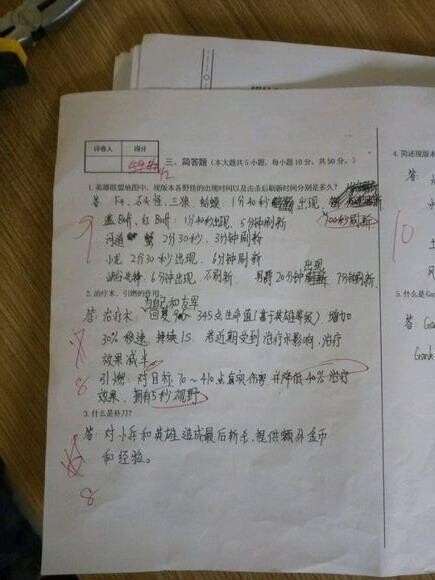 评卷人 得分
三、简答题（本大题共5小题，每小题10分，共50分。）
1.英雄联盟地图中，现版本各野怪的出现时间以及击杀后刷新时间分别是多久？
答: F4、石头怪、三狼、蛤蟆：1分40秒出现，
100秒刷新
蓝Buff、红Buff：1分40秒出现，5分钟刷新
河道蟹 2分30秒、3分钟刷新
小龙 2分30秒出现、6分钟刷新 出现
峡谷先锋：6分钟出现、不刷新. 男爵20分钟 7分钟刷新
9
2.治疗术、引燃的作用
与自己和友军
答：治疗术：回复90~345点生命值(基于英雄等级) 增加
30%移速，持续1S. 若近期受到治疗术影响，治疗
效果减半
引燃：对目标70~410点真实伤害并降低40%治疗
效果、拥有5秒视野
8
3.什么是补刀？
答：对小兵和英雄造成最后斩杀，提供额外金币
和经验。
8
4.简述现版本
答:
10
5.什么是G
答: Gank
Gank